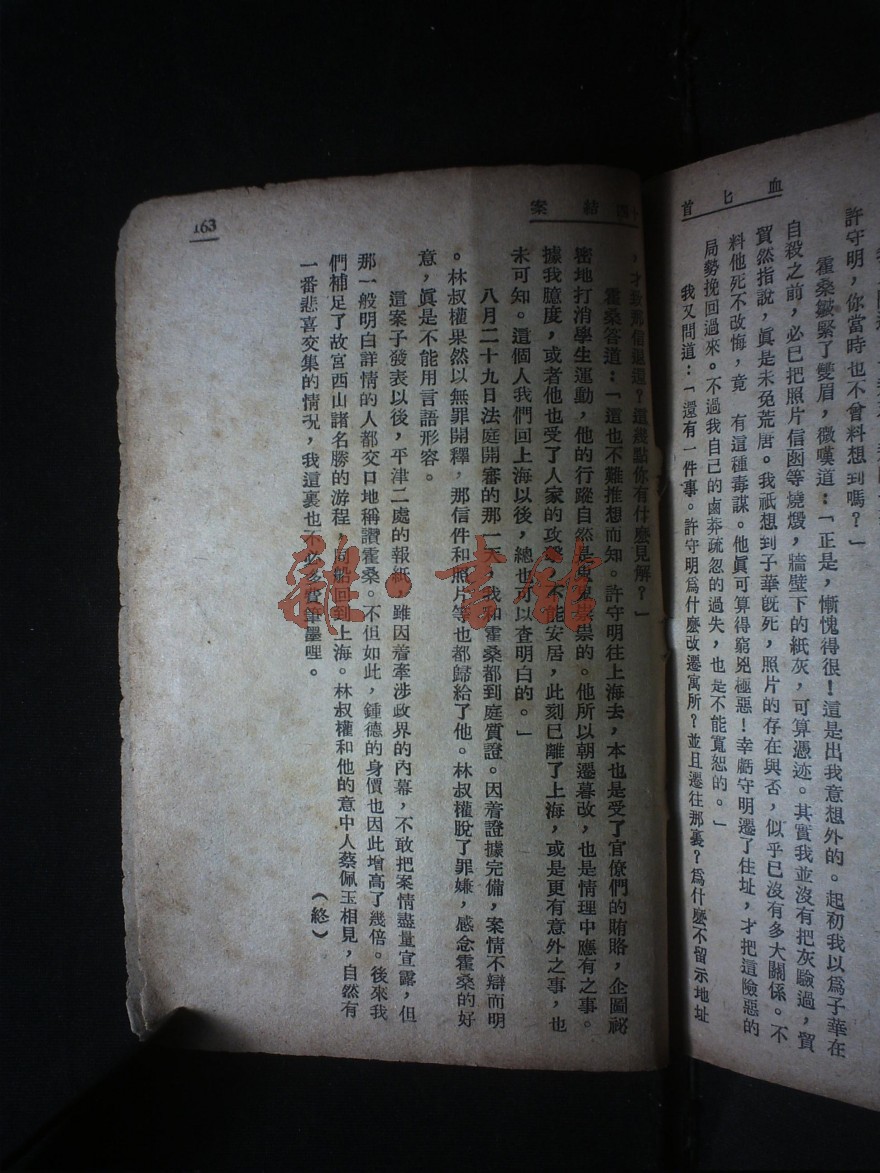 血匕首
許守明，你當時也不會料想到嗎？」
霍桑皺緊了雙眉，微嘆道：「正是，慚愧得很！這是出我意想外的。起初我以爲子華在
自殺之前，必已把照片信函等燒燬，牆壁下的紙灰，可算憑迹。其實我並沒有把灰驗過，貿
貿然指說，眞是未免荒唐。我祇想到子華旣死，照片的存在與否，似乎已沒有多大關係。不
料他死不改悔，竟 有這種毒謀。他眞可算得窮兇極惡！幸虧守明遷了住址，才把這險惡的
局勢挽回過來。不過我自己的鹵莽疏忽的過失，也是不能寬恕的。」
我又問道：「還有一件事。許守明爲什麽改遷寓所？並且遷往那裏？爲什麽不留示地址
十四 結案
，才致那信退還？這幾點你有什麽見解？」
霍桑答道：「這也不難推想而知。許守明往上海去，本也是受了官僚們的賄賂，企圖祕
密地打消學生運動，他的行蹤自然是鬼鬼祟祟的。他所以朝遷暮改，也是情理中應有之事。
據我臆度，或者他也受了人家的攻擊，不能安居，此刻已離了上海，或是更有意外之事，也
未可知。這個人我們回上海以後，總也可以查明白的。」
八月二十九日法庭開審的那一天，我和霍桑都到庭質證。因着證據完備，案情不辯而明
。林叔權果然以無罪開釋，那信件和照片等也都歸給了他。林叔權脫了罪嫌，感念霍桑的好
意，眞是不能用言語形容。
這案子發表以後，平津二處的報紙，雖因着牽涉政界的內幕，不敢把案情盡量宣露，但
那一般明白詳情的人都交口地稱讚霍桑。不但如此，鍾德的身價也因此增高了幾倍。後來我
們補足了故宮西山諸名勝的游程，同船回到上海。林叔權和他的意中人蔡佩玉相見，自然有
一番悲喜交集的情況，我這裏也不必多費筆墨哩。
（終）
163
雜·書館